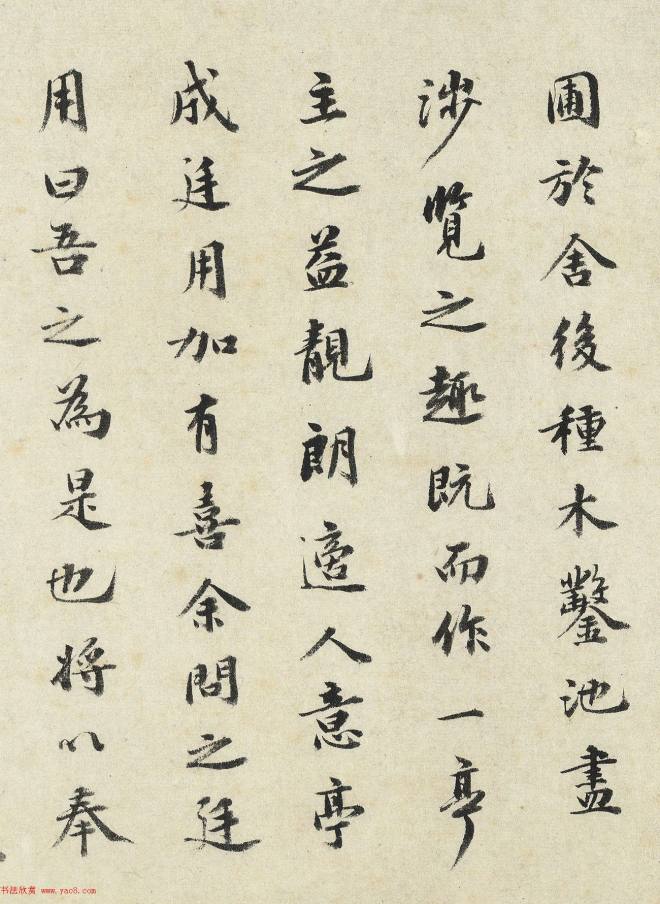 圃於舍後種木鑿池盡
涉覽之趣既而作一亭
主之益靚朗適人意亭
成廷用加有喜余問之廷
用曰吾之為是也將以奉
书法欣赏 www.yac8.com